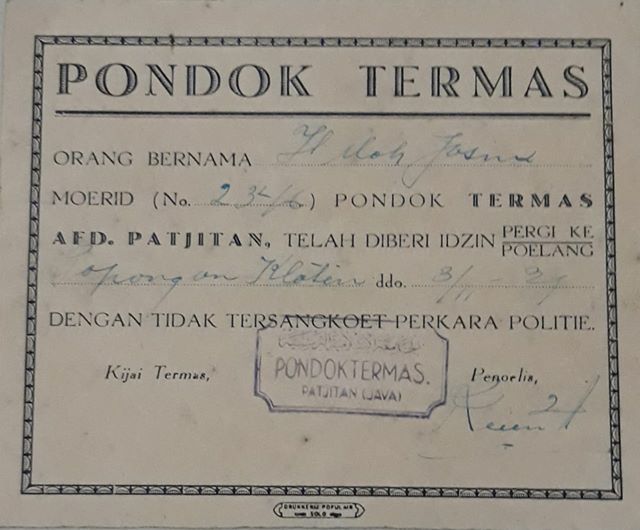 PONDOK TERMAS
ORANG BERNAMA
MOERID (No. ) PONDOK TERMAS
AFD. PATJITAN, TELAH DIBERI IDZIN PERGI KE
POELANG
Popongan Klaten ddo. 3/11 - 39
DENGAN TIDAK TERSANGKOET PERKARA POLITIE.
PONDOK TERMAS.
PATJITAN (JAVA)
Kijai Termas, Penoelis,
DRUKKERIJ POPULAIR
SOLO